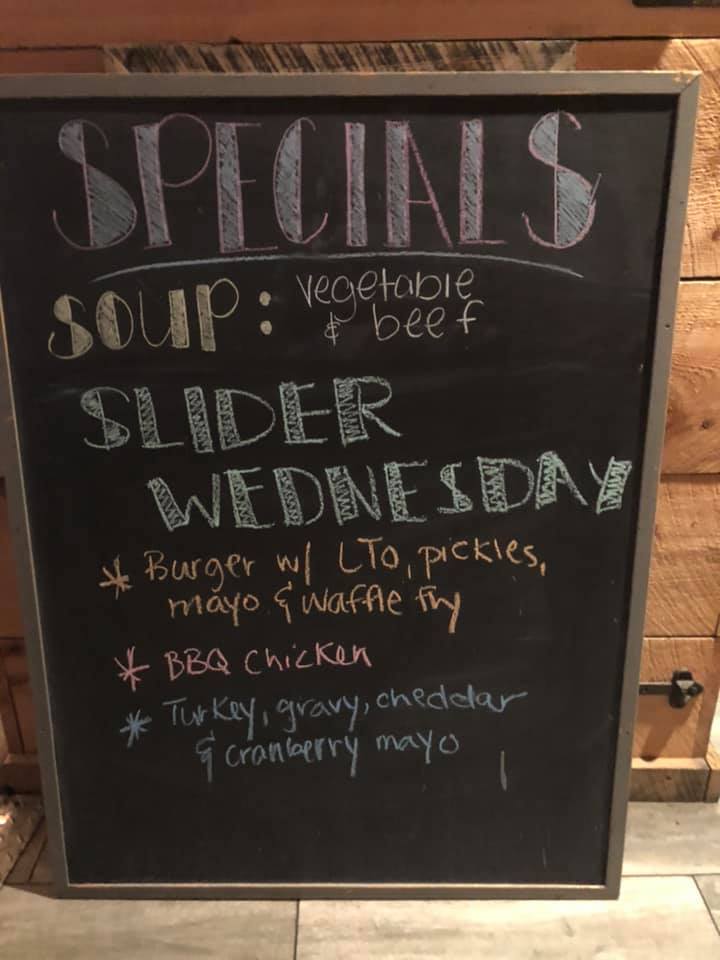 SPECIALS
SOUP: vegetable
& beef
SLIDER
WEDNESDAY
* Burger w/ LTO, pickles,
mayo & waffle fry
* BBQ Chicken
* Turkey, gravy, cheddar
& cranberry mayo